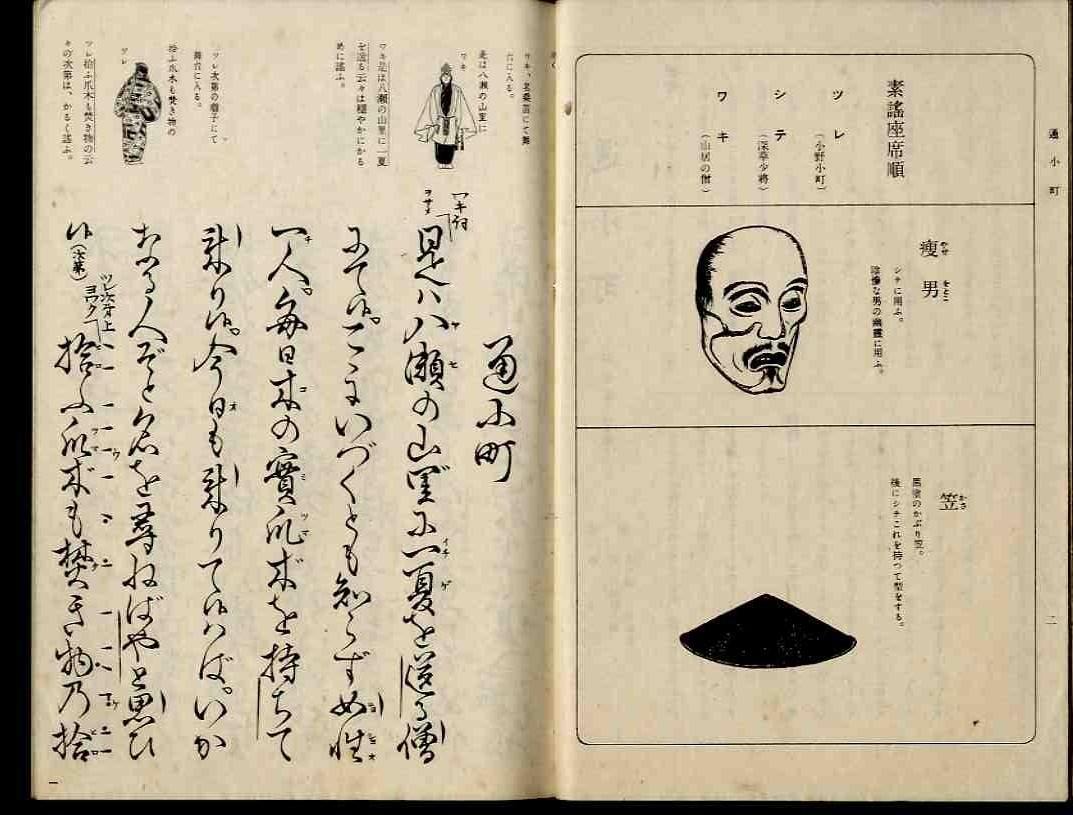 通小町
二
素謠座席順
ツレ
(小野小町)
シテ
(深草少將)
ワキ
(山居の僧)
瘦男
やせをとこ
シテに用ふ。
陰慘な男の幽靈に用ふ。
笠
かさ
黑塗のかぶり笠。
後にシテこれを持つて型をする。
ワキ、名乘笛にて舞
台に入る。
ワキ
是は八瀬の山里に
ワキ是は八瀬の山里に一夏
を送る云々は穩やかにかる
めに謠ふ。
ツレ次第の囃子にて
舞台に入る。
拾ふ爪木も焚き物の
ツレ
ツレ拾ふ爪木も焚き物の云
々の次第は、かるく謠ふ。
通小町
ワキ詞
ヲサメ
是ハ八瀬の山里に一夏を送る僧
にて候。こゝにいづくとも知らず女性
一人。毎日木の實爪木を持ちて
來り候。今日も來りて候はば。いか
なる人ぞと名を尋ねばやと思ひ
候(次第)
ツレ次第上
ヨワク
拾ふ爪木も焚き物乃拾
一